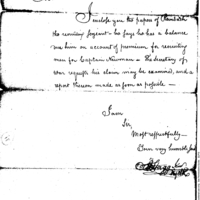 I enclose you the papers of
the recruiting Sergeant - he says he has a balance
due him on account of premiums for recruiting
men for Captain Newman - The Secretary of
War requests his claim may be examined, and a
report thereon made as soon as possible -
I am
Sir,
Most respectfully
Your very humble